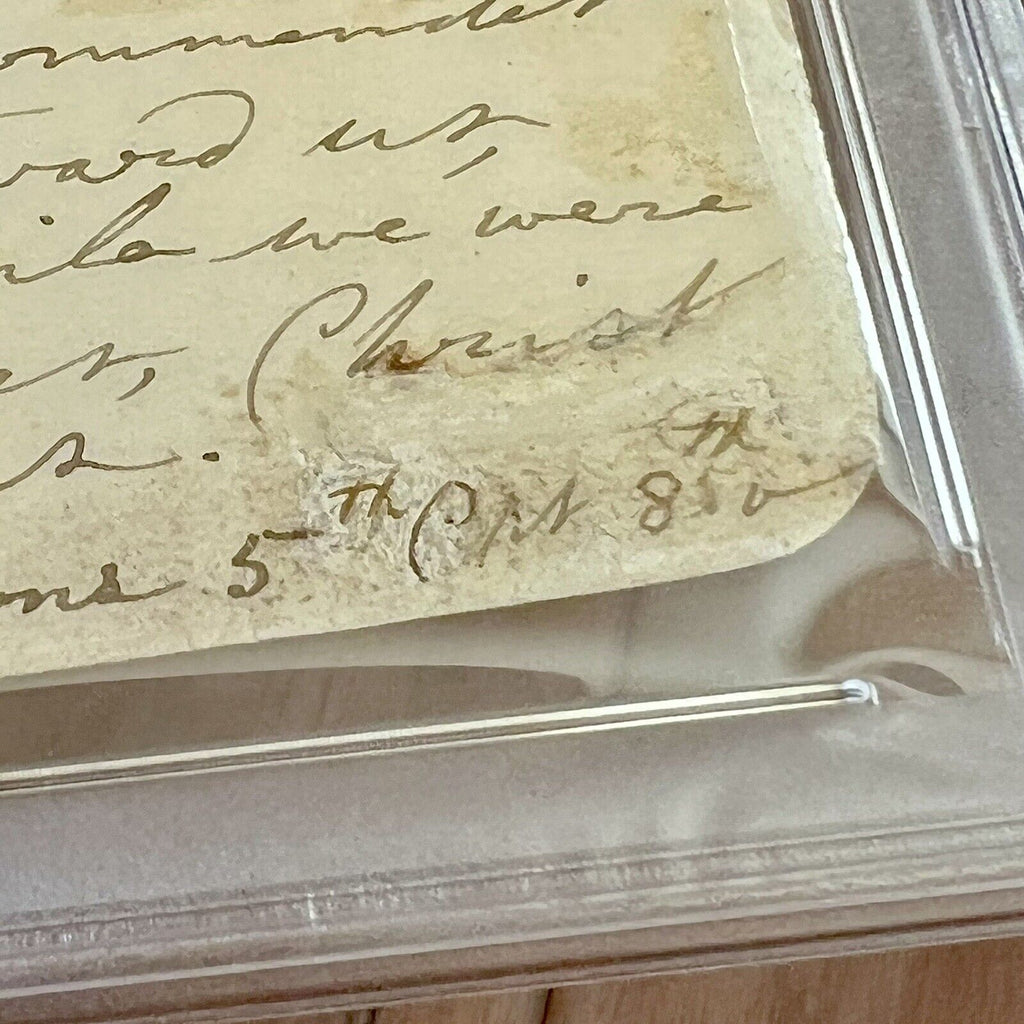 ommendet
ward us,
ile we were
rs, Christ
s.
ons 5th Cpt 8th v